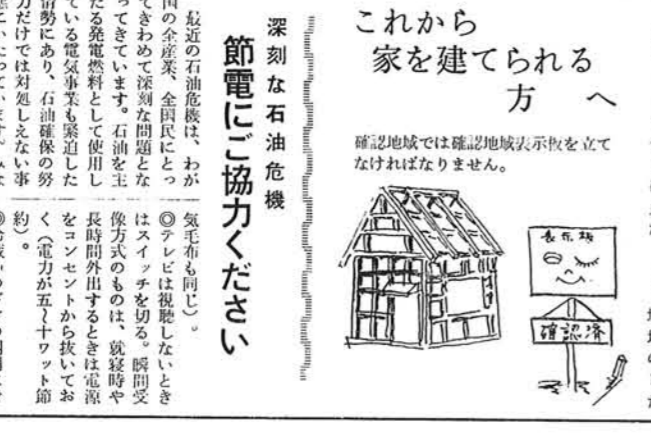 これから
家を建てられる
方へ
確認地域では確認地域表示板を立て
なければなりません。
表示板
確認済
深刻な石油危機
節電にご協力ください
最近の石油危機は、わが
国の全産業、全国民にとっ
てきわめて深刻な問題とな
ってきています。石油を主
たる発電燃料として使用し
ている電気事業も緊迫した
情勢にあり、石油確保の努
力だけでは対処しえない事
気毛布も同じ）。
◎テレビは視聴しないとき
はスイッチを切る。瞬間受
像方式のものは、就寝時や
長時間外出するときは電源
をコンセントから抜いてお
く（電力が五〜十ワット節
約）。